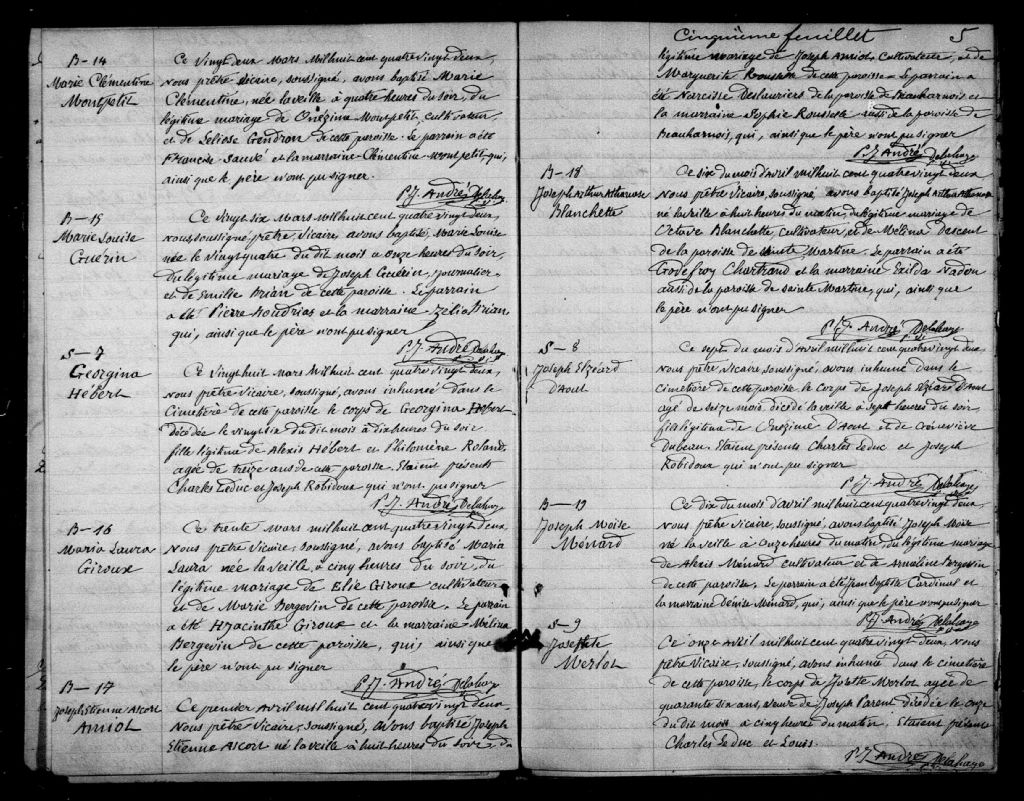 B-14
Marie Clémentine
Montpetit
Ce Vingt deux Mars Mil huit cent quatre vingt deux,
Nous prêtre Vicaire, soussigné, avons baptisé Marie
Clémentine, née la veille à quatre heures du soir, du
légitime mariage de Onézime Montpetit, cultivateur,
et de Séliose Gendron de cette paroisse. Le parrain a été
Francis Sauvé et la marraine Clémentine Montpetit, qui,
ainsi que le père n'ont pu signer.
P. J. André Delahaye
B-15
Marie Louise
Guérin
Ce vingt six Mars Mil huit cent quatre vingt deux,
Nous soussigné, prêtre, Vicaire, avons baptisé, Marie Louise
née le vingt quatre du dit mois à onze heures du soir,
du légitime mariage de Joseph Guérin, journalier
et de Emilie Brian de cette paroisse. Le parrain
a été Pierre et la marraine Brian
qui, ainsi que le père n'ont pu signer
P. J. André Delahaye
S-7
Georgina
Hébert
Ce Vingt huit Mars Mil huit cent quatre vingt deux,
Nous prêtre Vicaire, soussigné, avons inhumée dans le
Cimetière de cette paroisse le corps de Georgina Hébert
décédée le vingt six du dit mois à dix heures du soir
fille légitime de Alexis Hébert et Philomène Roland,
agée de treize ans de cette paroisse. Etaient présents
Charles Leduc et Joseph Robidoux qui n'ont pu signer
P. J. André Delahaye
B-16
Maria Laura
Giroux
Ce trente Mars mil huit cent quatre vingt deux
Nous prêtre Vicaire, soussigné, avons baptisé Maria
Laura née la veille à cinq heures du soir, du
légitime mariage de Elie Giroux cultivateur
et de Marie Bergevin de cette paroisse. Le parrain
a été Hyacinthe Giroux et la marraine Mélina
Bergevin de cette paroisse, qui, ainsi que
le père n'ont pu signer
P. J. André Delahaye
B-17
Joseph Etienne Alcort
Amiot
Ce premier Avril mil huit cent quatre vingt deux
Nous prêtre Vicaire, soussigné, avons baptisé Joseph
Etienne Alcort né la veille à huit heures du soir, du
Cinquième feuillet 5
légitime mariage de Joseph Amiot, Cultivateur, et de
Marguerite Rousselle de cette paroisse. Le parrain a
été Narcisse Deslauriers de la paroisse de Beauharnois et
la marraine Sophie Rousselle aussi de la paroisse de
Beauharnois, qui, ainsi que le père n'ont pu signer
P. J. André Delahaye
B-18
Joseph Arthur Athanase
Blanchette
Ce six du mois d'avril mil huit cent quatre vingt deux
Nous prêtre Vicaire, soussigné, avons baptisé Joseph Arthur Athanase
né la veille à huit heures du matin, du légitime mariage de
Octave Blanchette, cultivateur, et de Mélina Descent
de la paroisse de Sainte Martine. Le parrain a été
Godefroy Chartrand et la marraine Exilda Nadon
aussi de la paroisse de sainte Martine, qui, ainsi que
le père n'ont pu signer
P. J. André Delahaye
S-8
Joseph Elzéard
D'Aout
Ce sept du mois d'Avril mil huit cent quatre vingt deux,
Nous prêtre Vicaire soussigné, avons inhumé dans le
Cimetière de cette paroisse, le corps de Joseph Elzéard D'Aout
agé de seize mois décédé la veille à sept heures du soir
fils légitime de Onézime D'Aout et de Géneviève
Dubeau. Etaient présents Charles Leduc et Joseph
Robidoux qui n'ont pu signer
P. J. André Delahaye
B-19
Joseph Moïse
Ménard
Ce dix du mois d'avril mil huit cent quatre vingt deux,
Nous prêtre Vicaire, soussigné, avons baptisé Joseph Moïse
né la veille à Onze heures du matin, du légitime mariage
de Alexis Ménard cultivateur et de Bergevin
de cette paroisse. Le parrain a été Jean Baptiste Cardinal et
la marraine Denise Ménard, qui, ainsi que le père n'ont pu signer
P. J. André Delahaye
S-9
Josephte
Merlot
Ce onze Avril mil huit cent quatre vingt deux, Nous
prêtre Vicaire, soussigné, avons inhumé dans le cimetière
de cette paroisse, le corps de Josette Merlot agée de
quarante six ans, Veuve de Joseph Parent décédée le onze
du dit mois à cinq heures du matin. Etaient présents
Charles Leduc et Louis.
P. J. André Delahaye